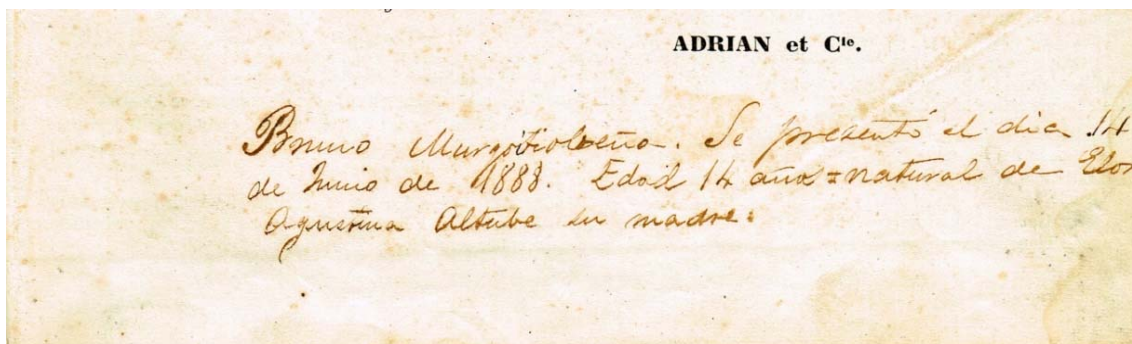 ADRIAN et Cie.
Bruno Murgoitiobeña. Se presentó el dia 14
de Junio de 1888. Edad 14 años = natural de Elor
Agustina Altube su madre.